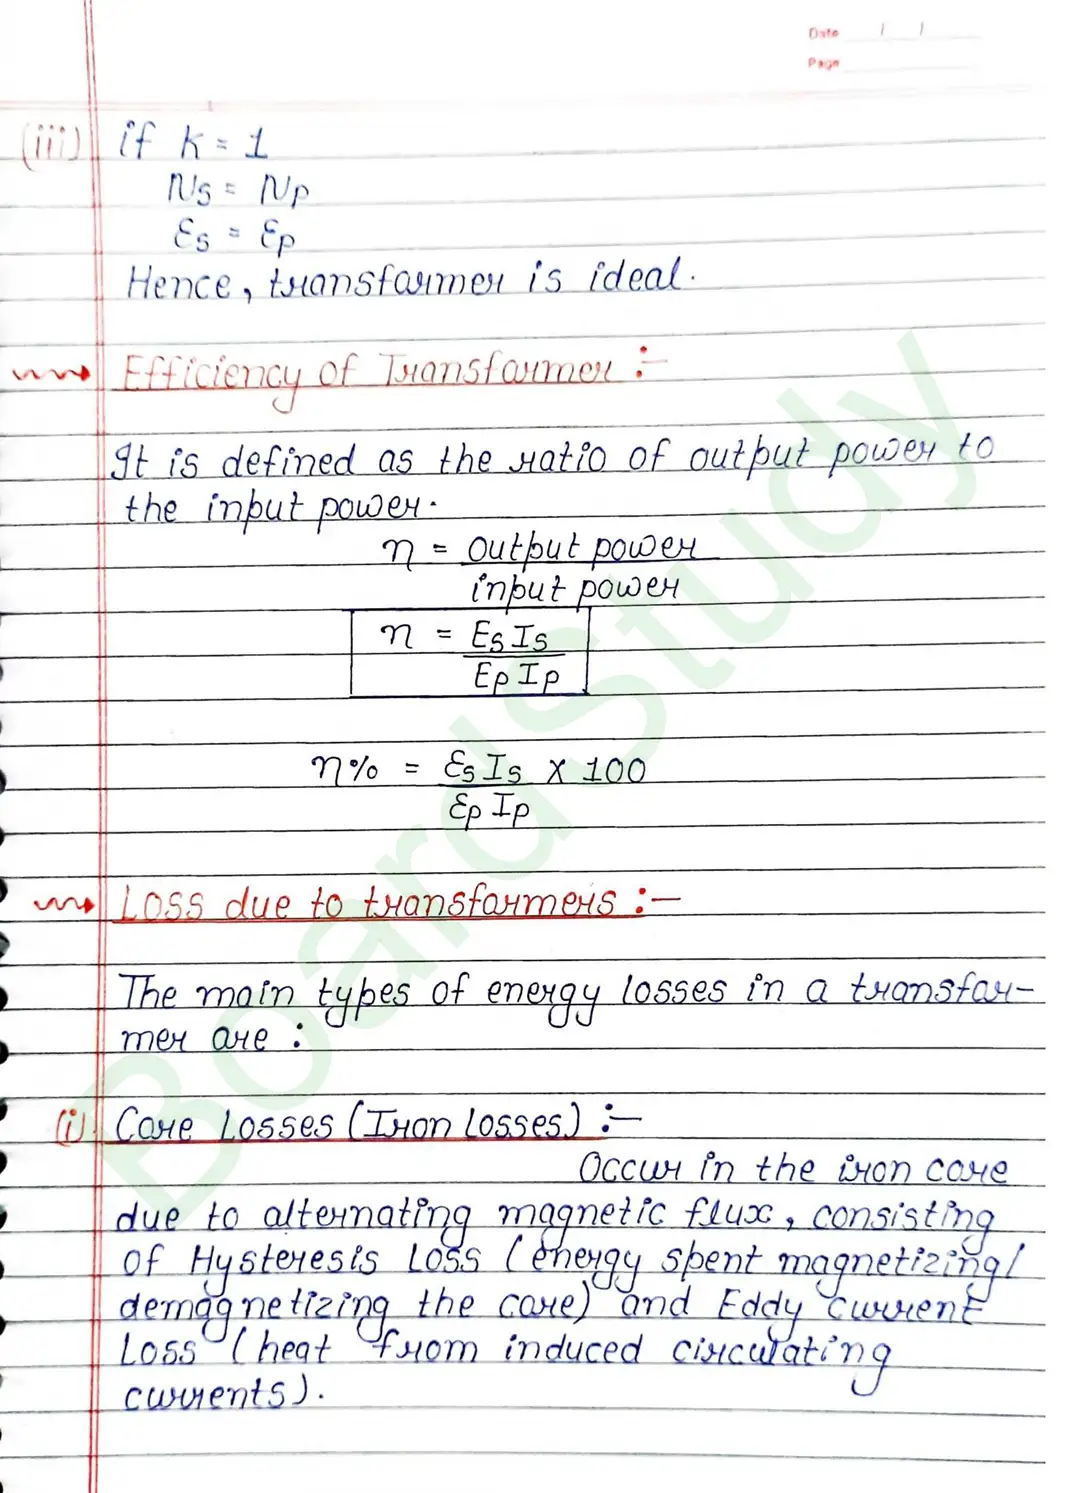 Date / /
Page
(iii) if k = 1
Ns = Np
Ɛs = Ɛp
Hence, transformer is ideal.
Efficiency of Transformer :-
It is defined as the ratio of output power to
the input power.
η = output power
input power
η = Es Is
Ep Ip
η% = Ɛs Is × 100
Ɛp Ip
Loss due to transformers :-
The main types of energy losses in a transfor-
mer are :
(i) Core Losses (Iron Losses) :-
Occur in the iron core
due to alternating magnetic flux, consisting
of Hysteresis Loss (energy spent magnetizing/
demagnetizing the core) and Eddy Current
Loss (heat from induced circulating
currents).
BoardStudy